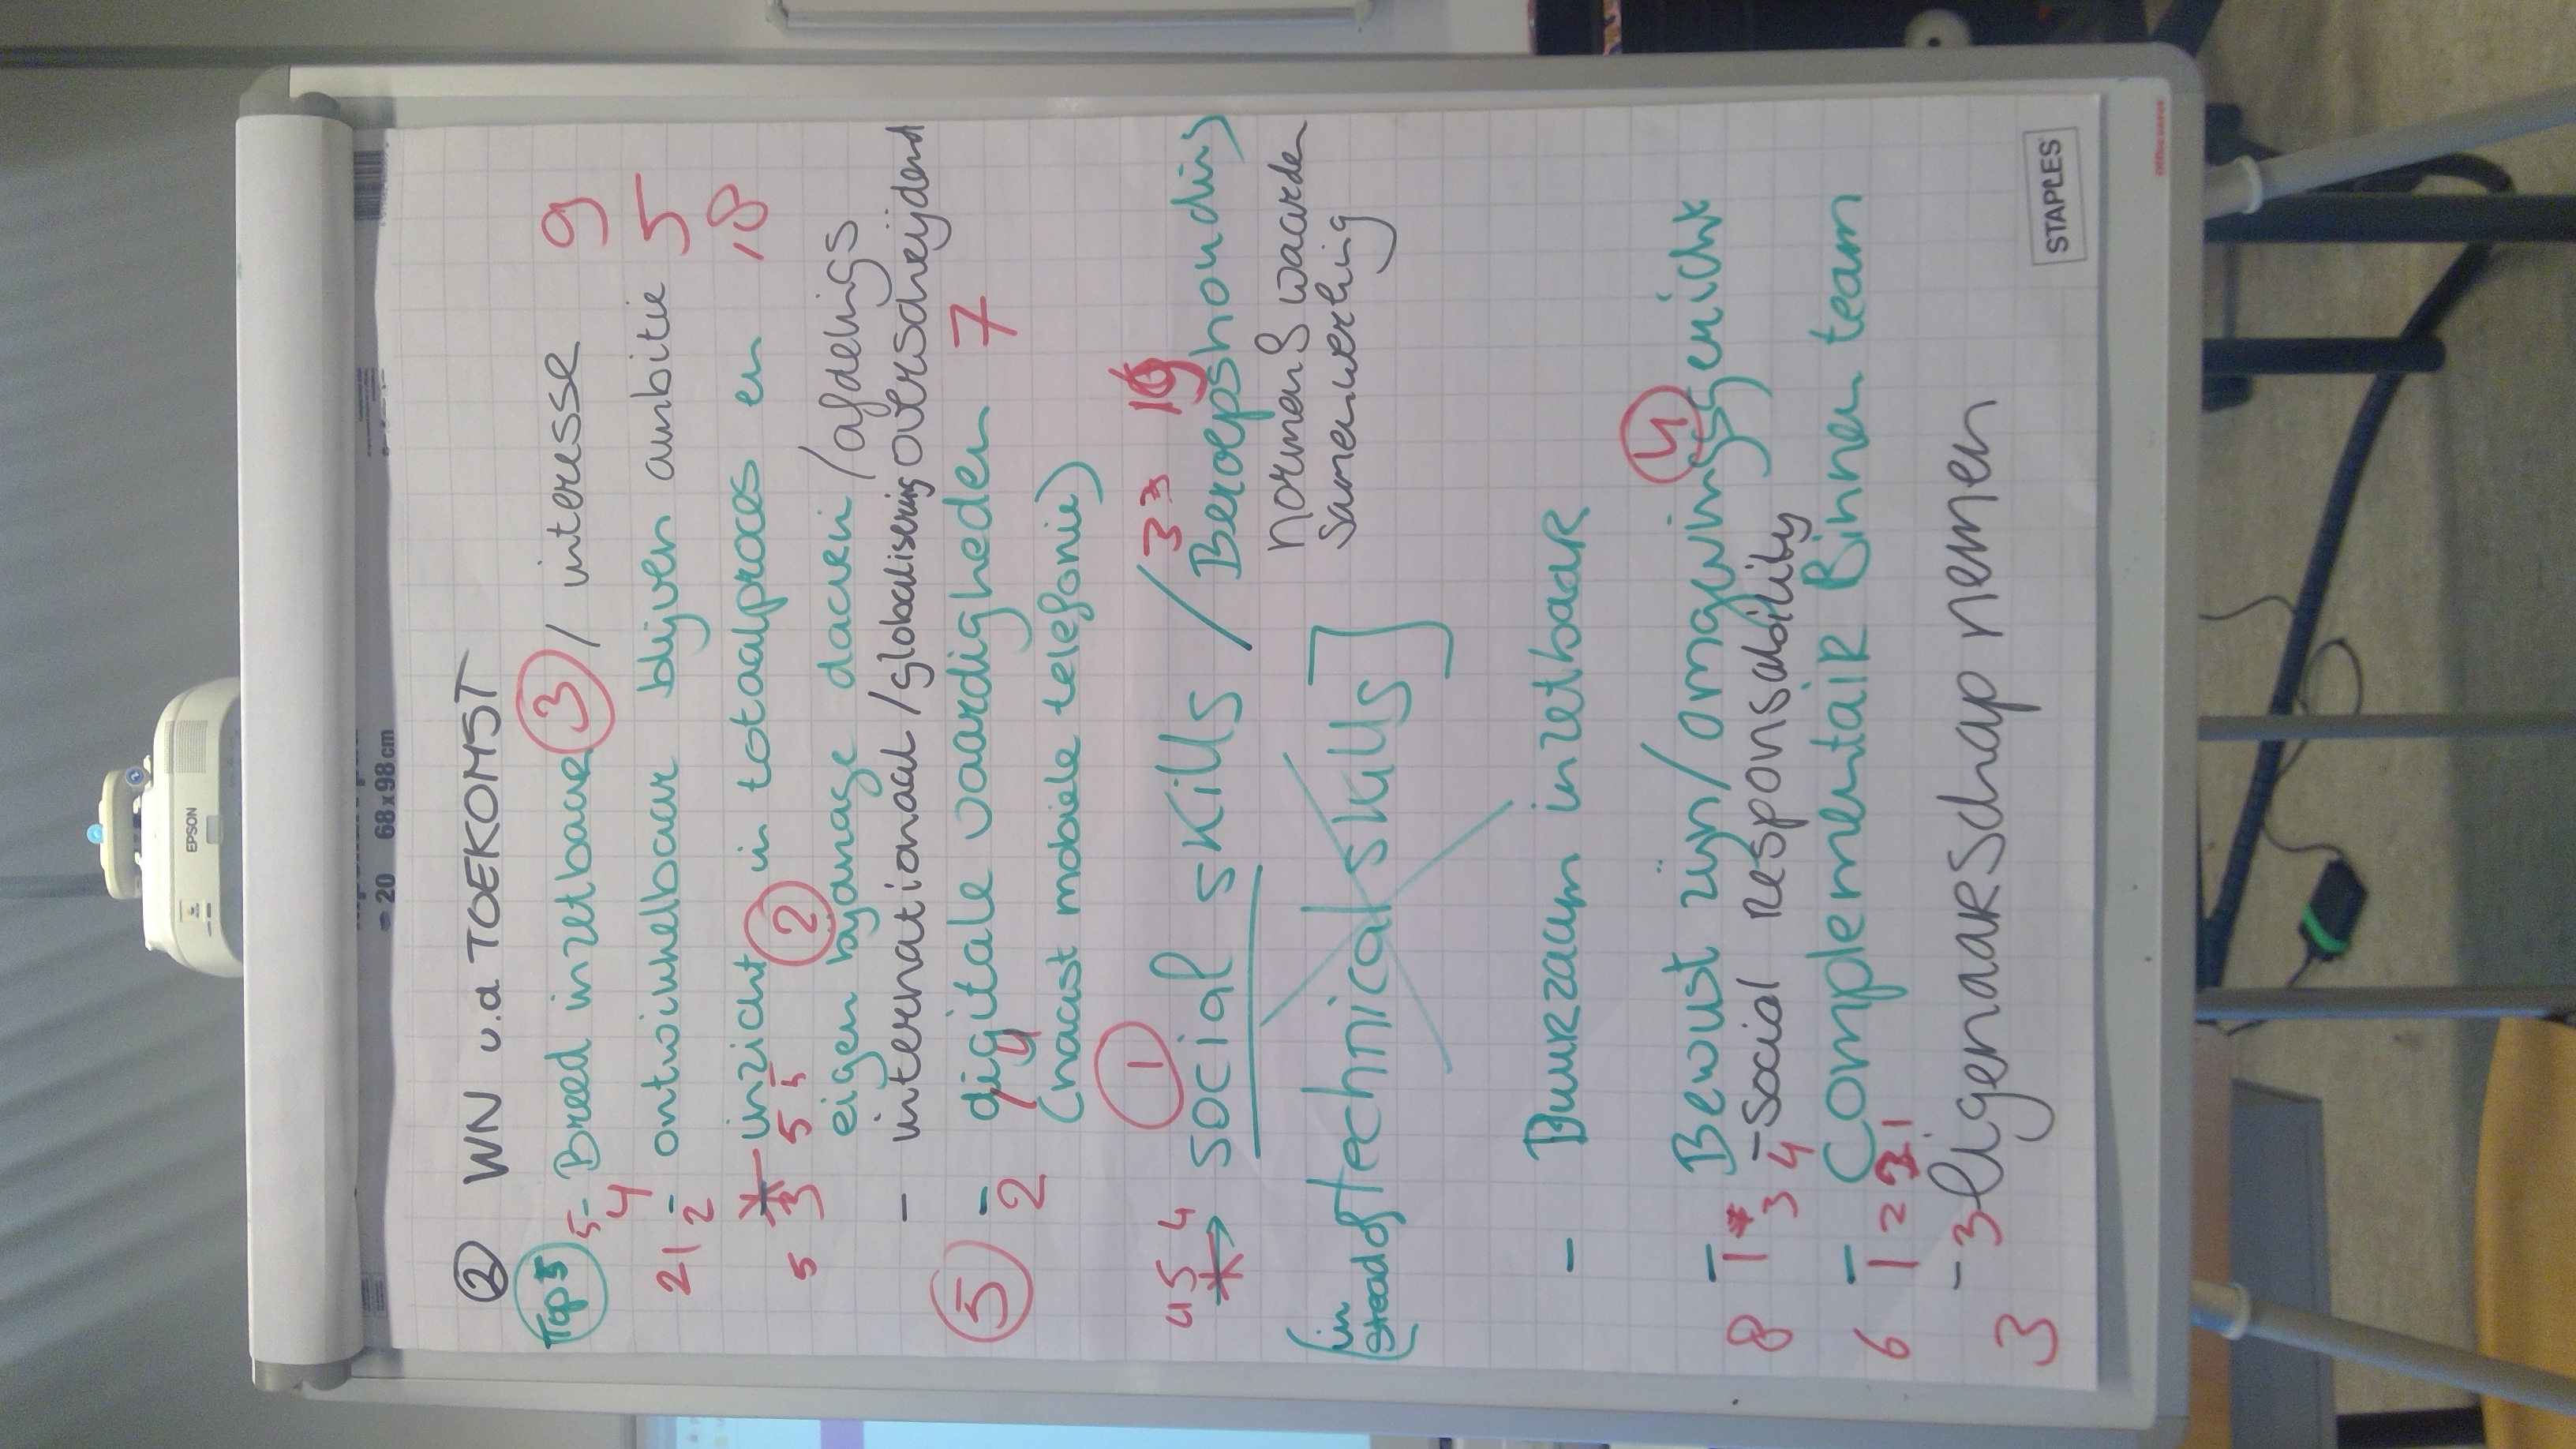 EPSON
= 20 68x98cm
② WN v.d TOEKOMST
Top 5
5 - Breed inzetbaar ③ / interesse 9
4
2 1 2 - ontwikkelbaar blijven ambitie 5
* - inzicht in totaalproces en 18
5 3 5 5 ②
eigen bijdrage daarin / afdelings
- internationaal / globalisering overschrijdend
⑤ - digitale vaardigheden 7
2 1 4
(naast mobiele telefonie)
① 3 3 19
4 5 4
* → social skills / Beroepshouding
normen & waarden
samenwerking
(in stead of technical skills]
- Duurzaam inzetbaar
④
- Bewust zijn / omgevingsgericht
8 1* 3 4 - Social Responsability
- Complementair Binnen team
6 1 2 2 1
- 3 eigenaarschap nemen
3
STAPLES